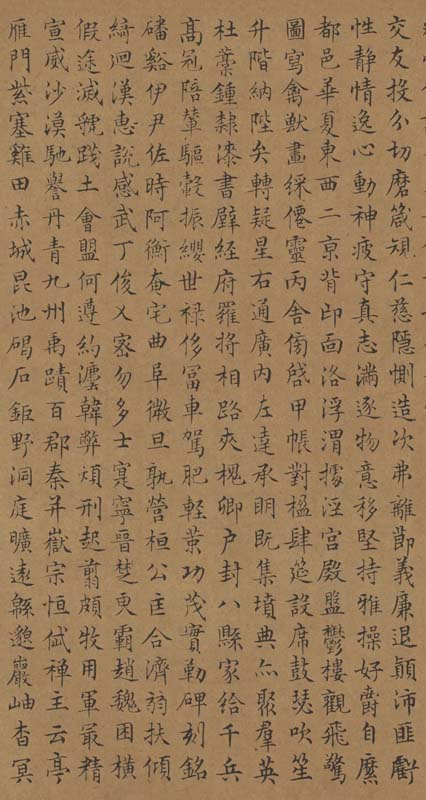 交友投分切磨箴規仁慈隱惻造次弗離節義廉退顛沛匪虧
性静情逸心動神疲守真志滿逐物意移堅持雅操好爵自縻
都邑華夏東西二京背邙面洛浮渭據涇宮殿盤鬱樓觀飛驚
圖寫禽獸畫綵僊靈丙舍傍啟甲帳對楹肆筵設席鼓瑟吹笙
升階納陛弁轉疑星右通廣內左達承明既集墳典亦聚羣英
杜稾鍾隸漆書壁經府羅將相路夾槐卿户封八縣家給千兵
髙冠陪輦驅轂振纓世禄侈富車駕肥輕策功茂實勒碑刻銘
磻谿伊尹佐時阿衡奄宅曲阜微旦孰營桓公匡合濟弱扶傾
綺迴漢惠說感武丁俊乂密勿多士寔寧晉楚更霸趙魏困橫
假途滅虢踐土會盟何遵約灋韓弊煩刑起翦頗牧用軍最精
宣威沙漠馳譽丹青九州禹蹟百郡秦并嶽宗恒岱禪主云亭
雁門紫塞雞田赤城昆池碣石鉅野洞庭曠遠緜邈巖岫杳冥